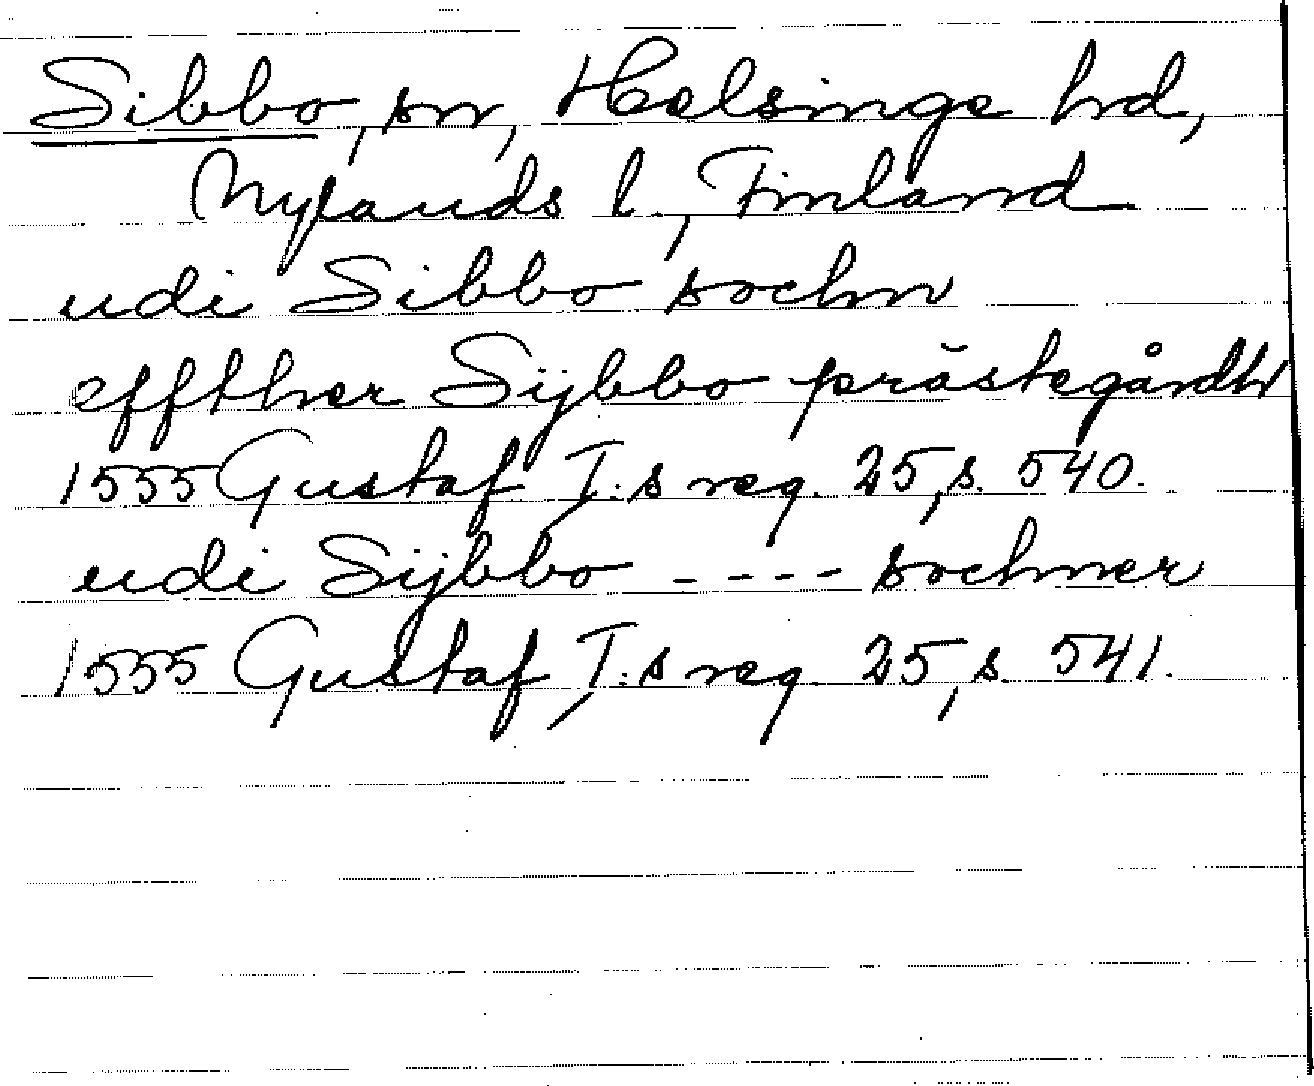 Sibbo, sn, Helsinge hd,
Nylands l., Finland
udi Sibbo sochn
effther Sijbbo prästegårdh
1555 Gustaf I:s reg. 25, s. 540.
udi Sijbbo ---- sochner
1555 Gustaf I:s reg. 25, s. 541.